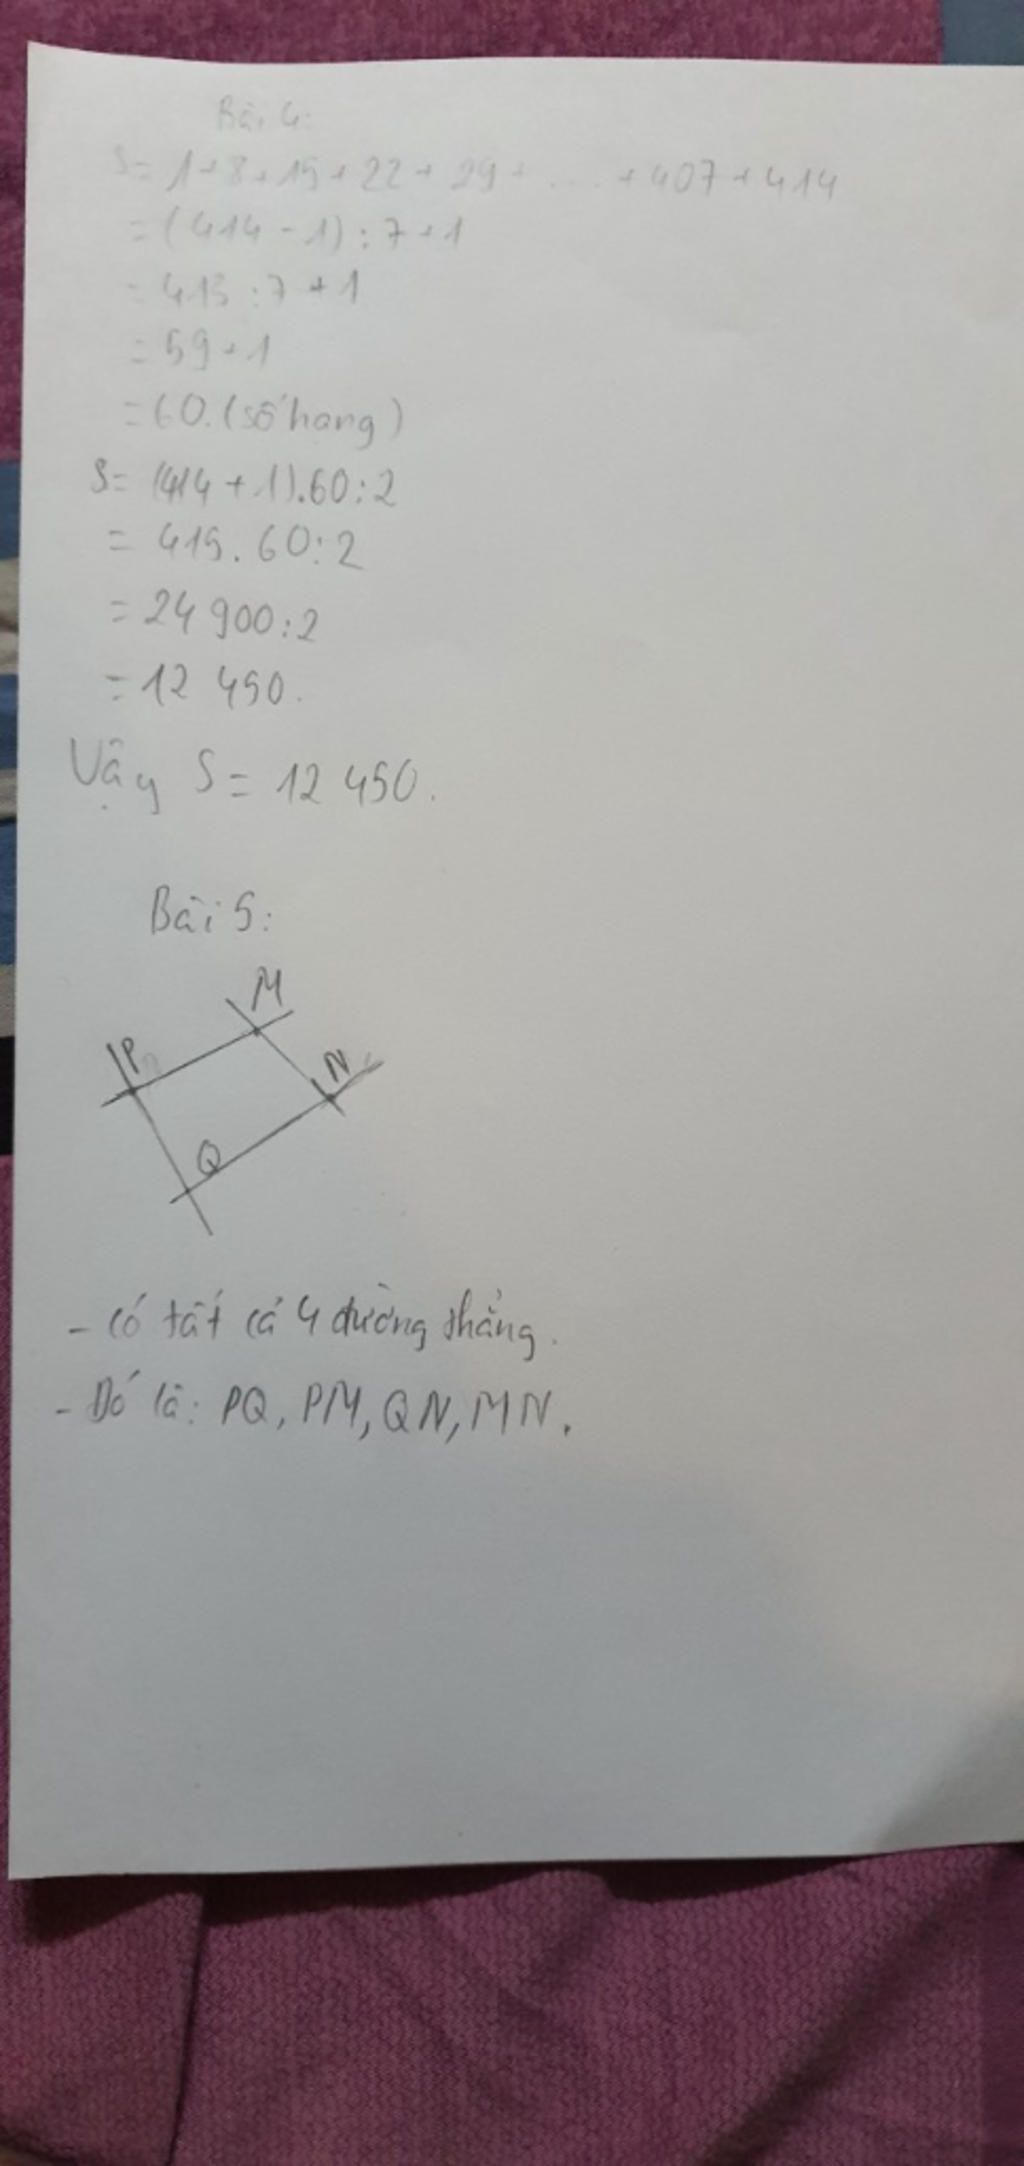 Bài 4:
S = 1 + 8 + 15 + 22 + 29 + .... + 407 + 414
= (414 - 1) : 7 + 1
= 413 : 7 + 1
= 59 + 1
= 60. (số hạng)
S = (414 + 1).60:2
= 415. 60:2
= 24 900:2
= 12 450.
Vậy S = 12 450.
Bài 5:
M
P
N
Q
- Có tất cả 4 đường thẳng.
- Đó là: PQ, PM, QN, MN.